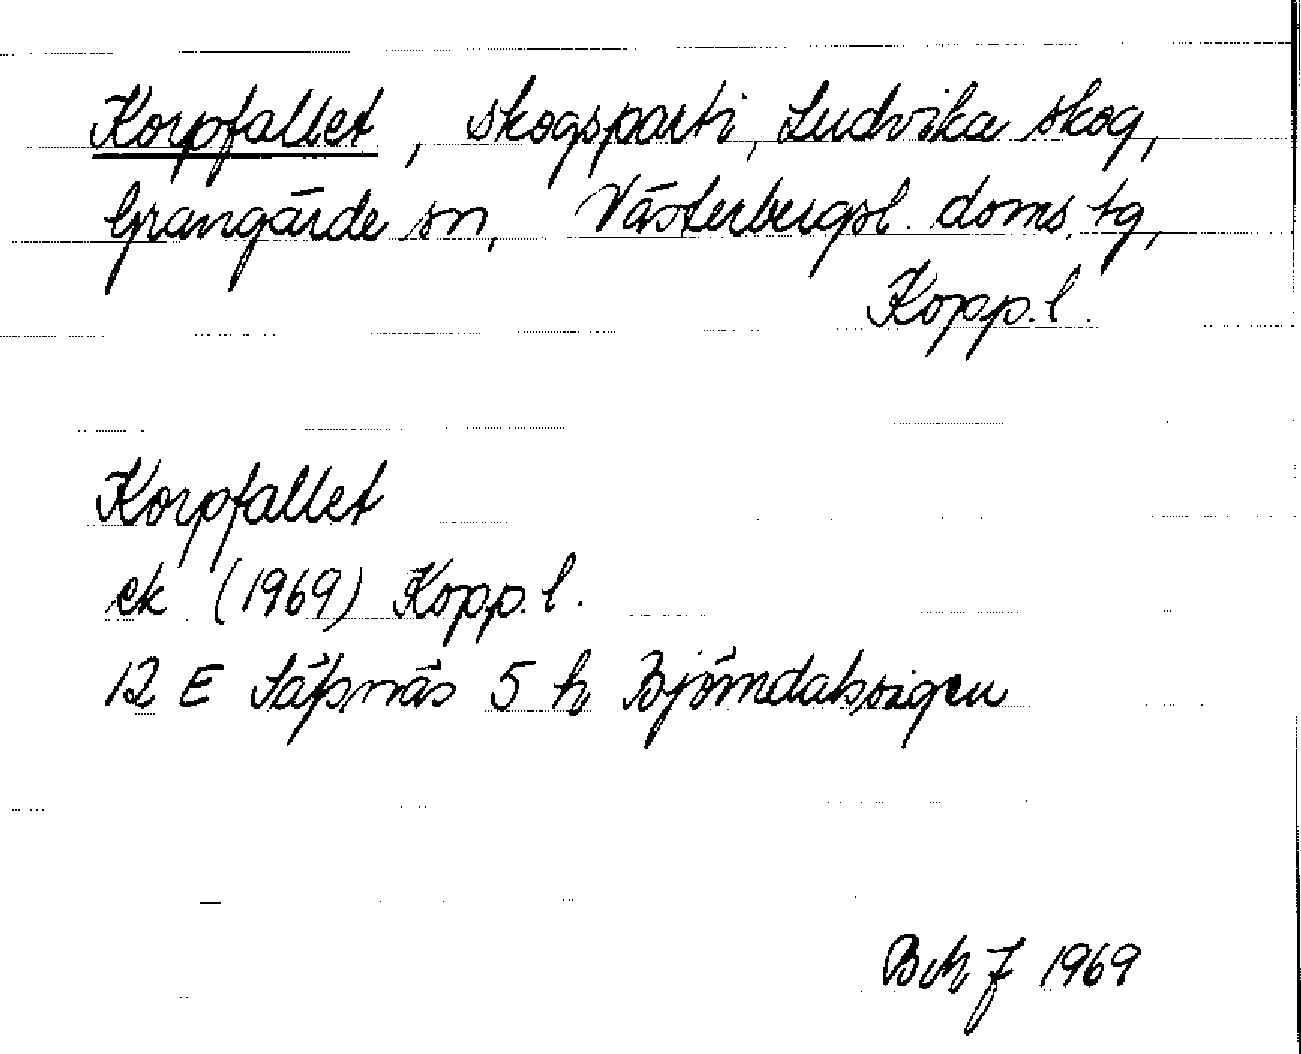 Korpfallet, skogsparti, Ludvika skog,
Grangärde sn, Västerbergsl. doms. tg,
Kopp. l.
Korpfallet
ek (1969) Kopp. l.
12 E Säfsnäs 5 h Björndalsvigen
BmJ 1969